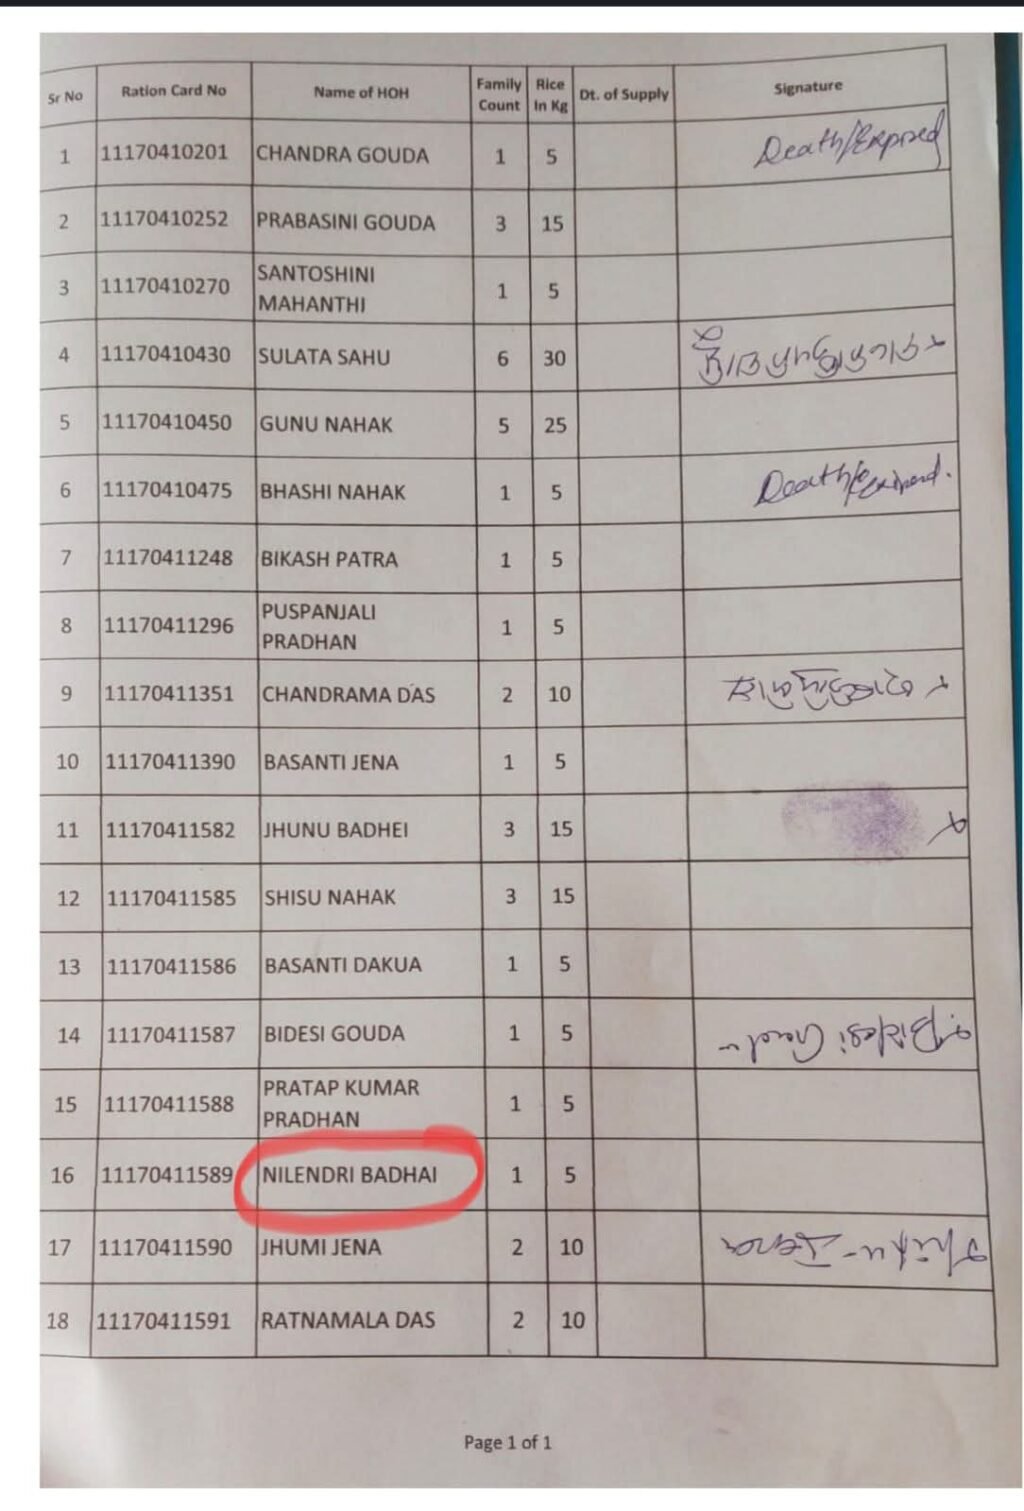 Sr No Ration Card No Name of HOH Family Count Rice In Kg Dt. of Supply Signature
1 11170410201 CHANDRA GOUDA 1 5 Death/Expired
2 11170410252 PRABASINI GOUDA 3 15
3 11170410270 SANTOSHINI MAHANTHI 1 5
4 11170410430 SULATA SAHU 6 30
5 11170410450 GUNU NAHAK 5 25
6 11170410475 BHASHI NAHAK 1 5 Death/Expired.
7 11170411248 BIKASH PATRA 1 5
8 11170411296 PUSPANJALI PRADHAN 1 5
9 11170411351 CHANDRAMA DAS 2 10
10 11170411390 BASANTI JENA 1 5
11 11170411582 JHUNU BADHEI 3 15
12 11170411585 SHISU NAHAK 3 15
13 11170411586 BASANTI DAKUA 1 5
14 11170411587 BIDESI GOUDA 1 5 Bidesi Gouda
15 11170411588 PRATAP KUMAR PRADHAN 1 5
16 11170411589 NILENDRI BADHAI 1 5
17 11170411590 JHUMI JENA 2 10 Jena
18 11170411591 RATNAMALA DAS 2 10
Page 1 of 1